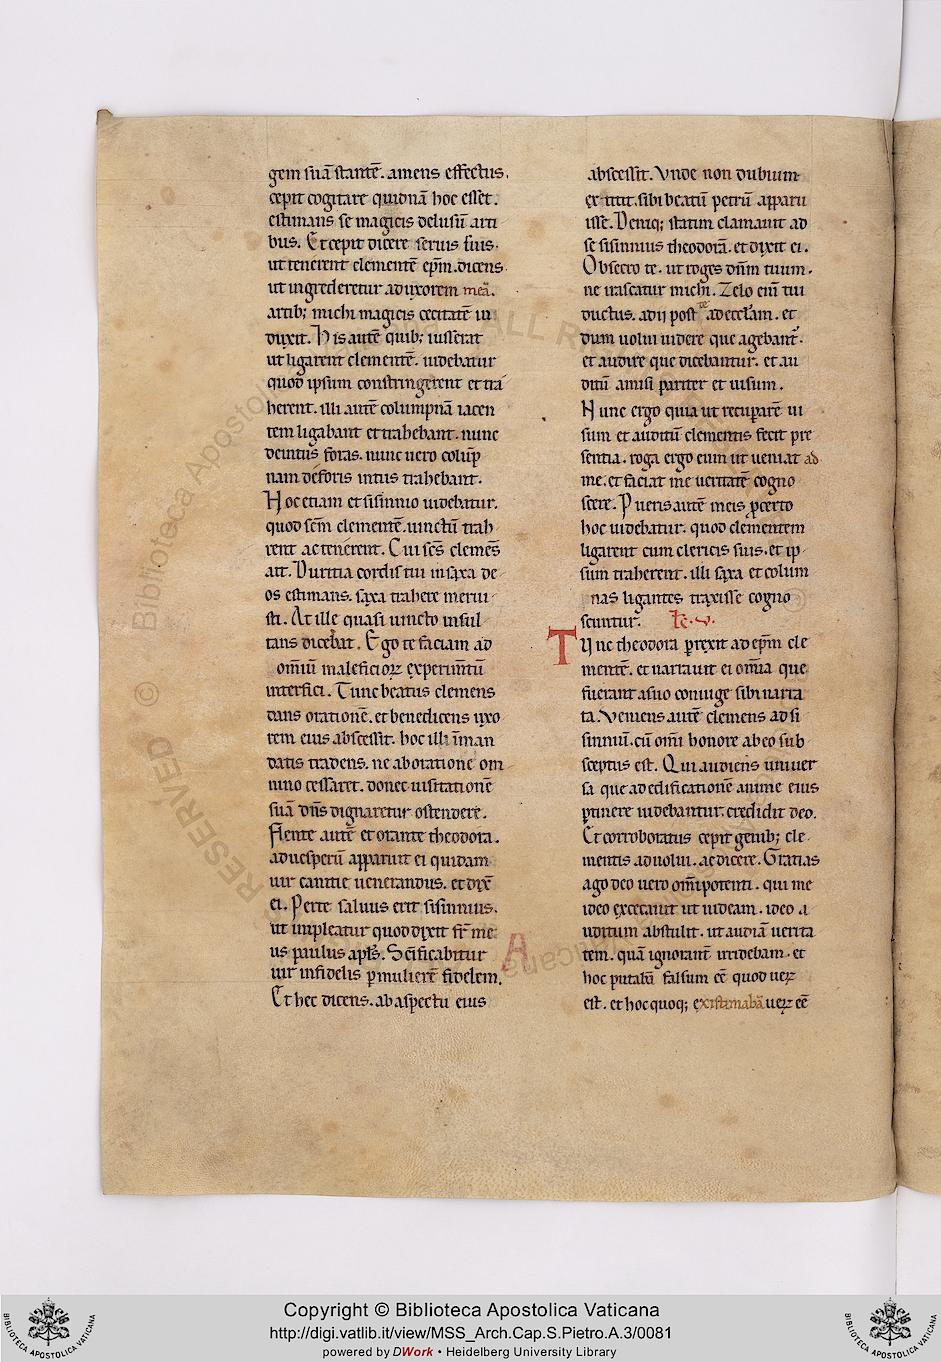 gem suā stantē. amens effectus.
cepit cogitare quidnā hoc esset.
estimans se magicis delusū arti
bus. Et cepit dicere seruis suis.
ut tenerent clementē ep̄m. dicens.
ut ingrederetur ad uxorem meā.
artib; michi magicis cecitatē in
duxit. His autē quib; iusserat
ut ligarent clementē. uidebatur
quod ipsum constringerent et tra
herent. illi autē columpnā iacen
tem ligabant et trahebant. nunc
deintus foras. nunc uero colūp
nam deforis intus trahebant.
Hoc etiam et sisinnio uidebatur.
quod sc̄m clementē. uinctū trah
rent ac tenerent. Cui sc̄s clemēs
ait. Duritia cordis tui in saxa de
os estimans. saxa trahere merui
sti. At ille quasi uincto insul
tans dicebat. Ego te faciam ad
omīum maleficioꝝ experim̄tū
interfici. Tunc beatus clemens
dans orationē. et benedicens uxo
rem eius abscessit. hoc illi īman
datis tradens. ne ab oratione om
nino cessaret. donec uisitationē
suā dn̄s dignaretur ostendere.
Flente autē et orante theodora.
ad uesperū apparuit ei quidam
uir canitie uenerandus. et dix̄
ei. Perte saluus erit sisinnius.
ut impleatur quod dixit fr̄ me
us paulus apl̄s. Scīficabitur
uir infidelis ꝑ mulierē fidelem.
Et hec dicens. ab aspectu eius
A
abscessit. Vnde non dubium
extitit. sibi beatū petrū apparu
isse. Deniq; statim clamauit ad
se sisinnius theodorā. et dixit ei.
Obsecro te. ut roges dn̄m tuum.
ne irascatur michi. Zelo enī tui
ductus. adii post te ad eccl̄am. et
dum uolui uidere que agebant̄.
et audire que dicebantur. et au
ditū amisi pariter et uisum.
Hunc ergo quia ut recuparē ui
sum et auditū clementis fecit pre
sentia. roga ergo eum ut ueniat ad
me. et faciat me ueritatē cogno
scere. Pueris autē meis ꝓ certo
hoc uidebatur. quod clementem
ligarent cum clericis suis. et ip
sum traherent. illi saxa et colum
nas ligantes traxisse cogno
scuntur. łc. v.
Tunc theodora ꝑrexit ad ep̄m cle
mentē. et narrauit ei om̄ia que
fuerant a suo coniuge sibi narra
ta. Veniens autē clemens ad si
sinniū. cū om̄i honore ab eo sub
sceptus est. Qui audiens uniuer
sa que ad edificationē anime eius
ꝑtinere uidebantur. credidit deo.
Et corroboratus cepit genib; cle
mentis aduolui. ac dicere. Gratias
ago deo uero om̄ipotenti. qui me
ideo excecauit ut uideam. ideo a
uditum abstulit. ut audiā uerita
tem. quā ignorant̄ irridebam. et
hoc putabā falsum eē quod ueꝝ
est. et hoc quoq; existimabā ueꝝ eē
Copyright © Biblioteca Apostolica Vaticana
http://digi.vatlib.it/view/MSS_Arch.Cap.S.Pietro.A.3/0081
powered by DWork • Heidelberg University Library